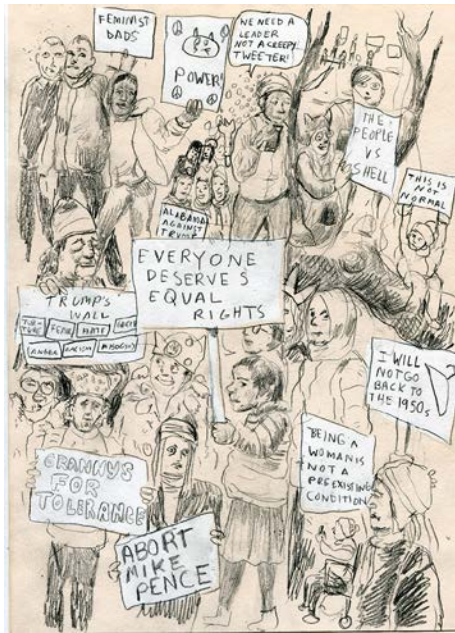 FEMINIST
DADS
POWER!
WE NEED A
LEADER
NOT A CREEPY
TWEETER!
THE
PEOPLE
VS
SHELL
THIS IS
NOT
NORMAL
ALABAMA
AGAINST
TRUMP
EVERYONE
DESERVES
EQUAL
RIGHTS
TRUMP'S
WALL
TOR-
TURE
FEAR
HATE
GREED
ANGER
RACISM
MISOGYNY
I WILL
NOT GO
BACK TO
THE 1950s
BEING A
WOMAN IS
NOT A
PREEXISTING
CONDITION
GRANNYS
FOR
TOLERANCE
ABORT
MIKE
PENCE